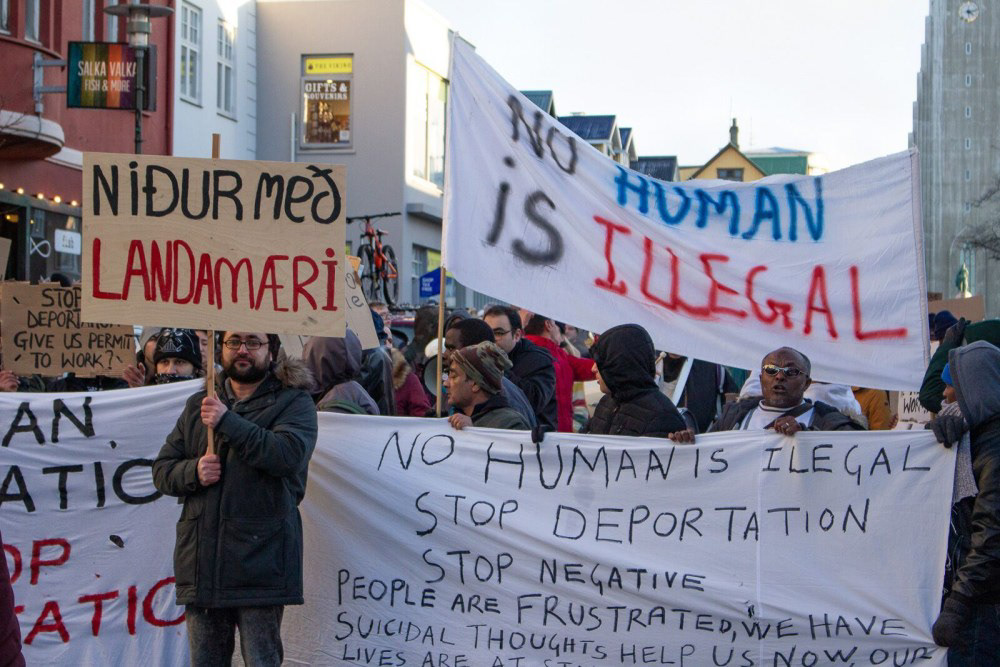 SALKA VALKA
FISH & MORE
THE VIKING
GIFTS &
SOUVENIRS
NO
HUMAN
iS
ILLEGAL
NIÐUR með
LANDAMÆRI
STOP
DEPORTATION
GIVE US PERMIT
TO WORK?
AN
ATIO
OP
TATIO
NO HUMAN IS ILEGAL
STOP DEPORTATION
STOP NEGATIVE
PEOPLE ARE FRUSTRATED, WE HAVE
SUICIDAL THOUGHTS HELP US NOW OUR
LIVES ARE AT